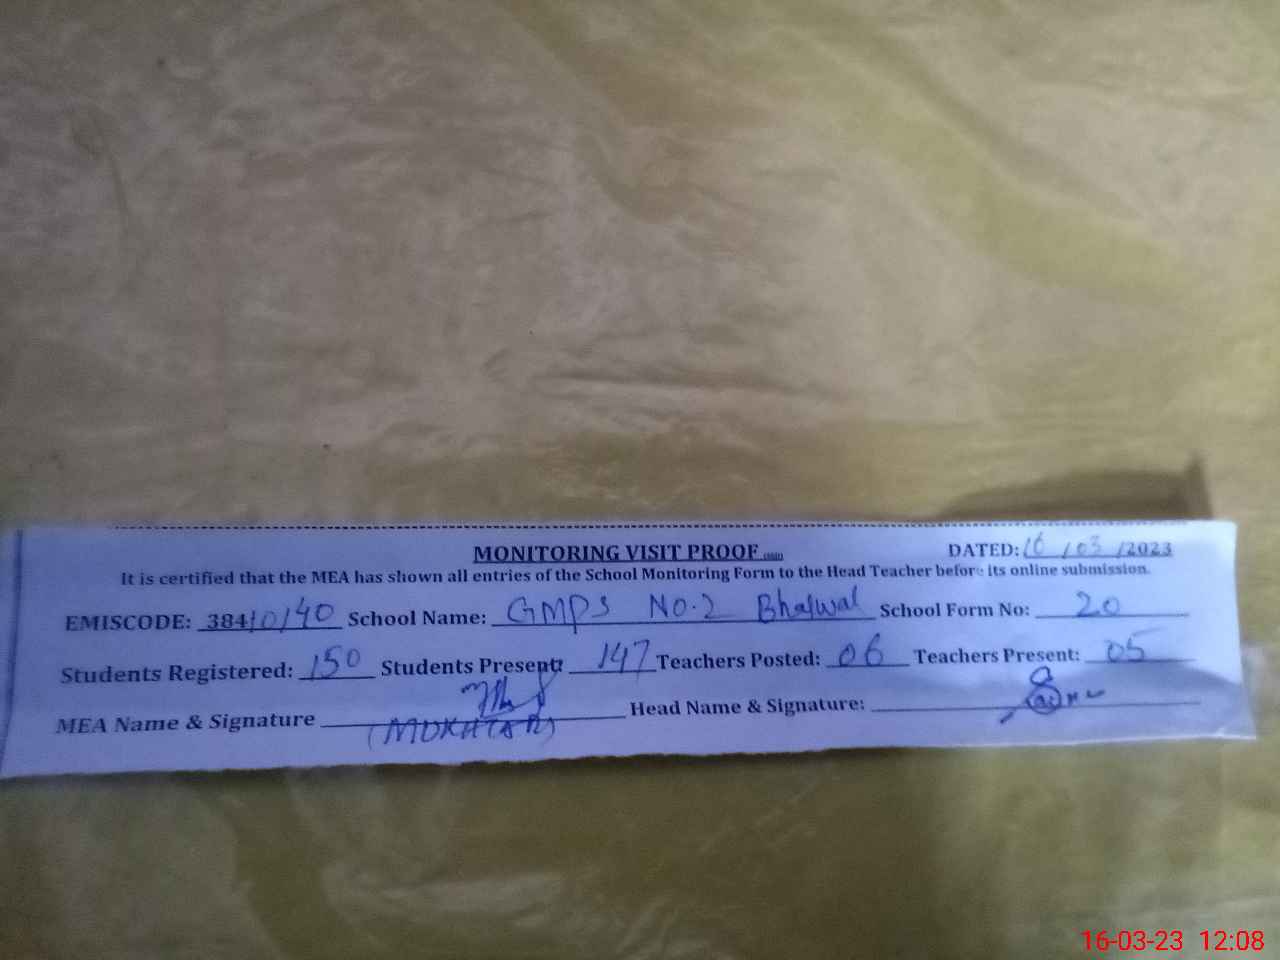 MONITORING VISIT PROOF DATED: 16/03/2023
It is certified that the MEA has shown all entries of the School Monitoring Form to the Head Teacher before its online submission.
EMISCODE: 38410140 School Name: GMPS NO.2 Bhalwal School Form No: 20
Students Registered: 150 Students Present: 147 Teachers Posted: 06 Teachers Present: 05
MEA Name & Signature Head Name & Signature:
(MUKHTAR)
16-03-23 12:08